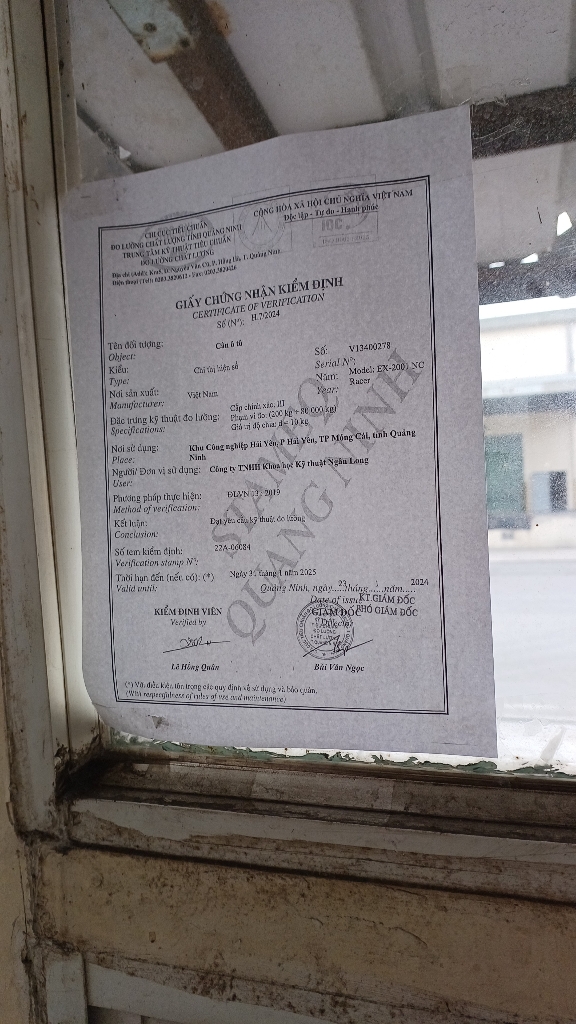 CHI CỤC TIÊU CHUẨN
ĐO LƯỜNG CHẤT LƯỢNG TỈNH QUẢNG NINH
TRUNG TÂM KỸ THUẬT TIÊU CHUẨN
ĐO LƯỜNG CHẤT LƯỢNG
CỘNG HÒA XÃ HỘI CHỦ NGHĨA VIỆT NAM
Độc lập - Tự do - Hạnh phúc
Nguyễn Văn Cừ, P. Hồng Hải, T. Quảng Ninh
Điện thoại (Tel): 0203.3820612 - Fax: 0203.3820626
GIẤY CHỨNG NHẬN KIỂM ĐỊNH
CERTIFICATE OF VERIFICATION
Số (Nº): H.7/2024
Tên đối tượng: Cân ô tô
Object:
Số: V13400278
Serial Nº:
Kiểu: Chỉ thị hiện số
Type:
Model: EX-2001 NC
Racer
Năm:
Year:
Nơi sản xuất: Việt Nam
Manufacturer:
Đặc trưng kỹ thuật đo lường: Cấp chính xác: III
Specifications: Phạm vi đo: (200 kg ÷ 80 000 kg)
Giá trị độ chia: d = 10 kg
Nơi sử dụng: Khu Công nghiệp Hải Yên, P Hải Yên, TP Móng Cái, tỉnh Quảng
Place: Ninh
Người/ Đơn vị sử dụng: Công ty TNHH Khoa học Kỹ thuật Ngân Long
User:
Phương pháp thực hiện: ĐLVN 13 : 2019
Method of verification:
Kết luận: Đạt yêu cầu kỹ thuật đo lường
Conclusion:
Số tem kiểm định: 22A-06084
Verification stamp Nº:
Thời hạn đến (nếu có): (*) Ngày 31 tháng 1 năm 2025
Valid until:
Quảng Ninh, ngày 23 tháng năm 2024
Date of issue
KIỂM ĐỊNH VIÊN
Verified by
KT GIÁM ĐỐC
GIÁM ĐỐC PHÓ GIÁM ĐỐC
Director
Lê Hồng Quân
Bùi Văn Ngọc
(*) Với điều kiện tôn trọng các quy định về sử dụng và bảo quản.
(With respectfulness of rules of use and maintenance)
STAMEQ
QUANG NINH